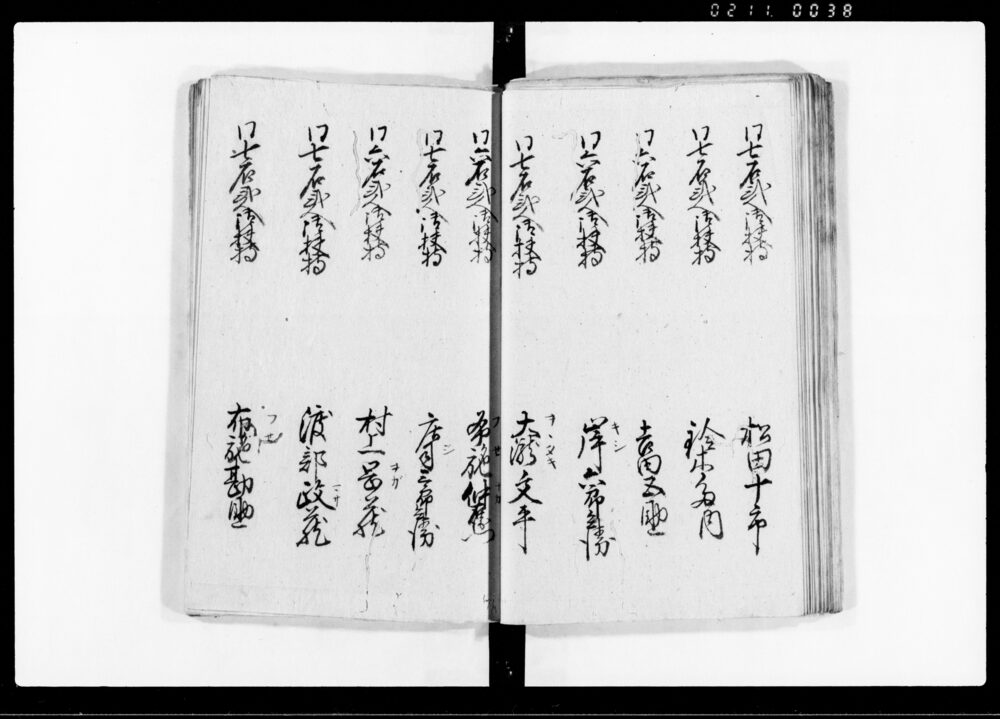 0211 0038
同七石弐人御扶持
松田十市
同七石弐人御扶持
鈴木多門
同六石弐人御扶持
吉田又助
同六石弐人御扶持
キシ
岸六郎兵衛
同七石弐人御扶持
大瀧文平
同六石弐人御扶持
フセ
布施
同七石弐人御扶持
同六石弐人御扶持
村上
同七石弐人御扶持
渡部政蔵
同七石弐人御扶持
フセ
布施勘助